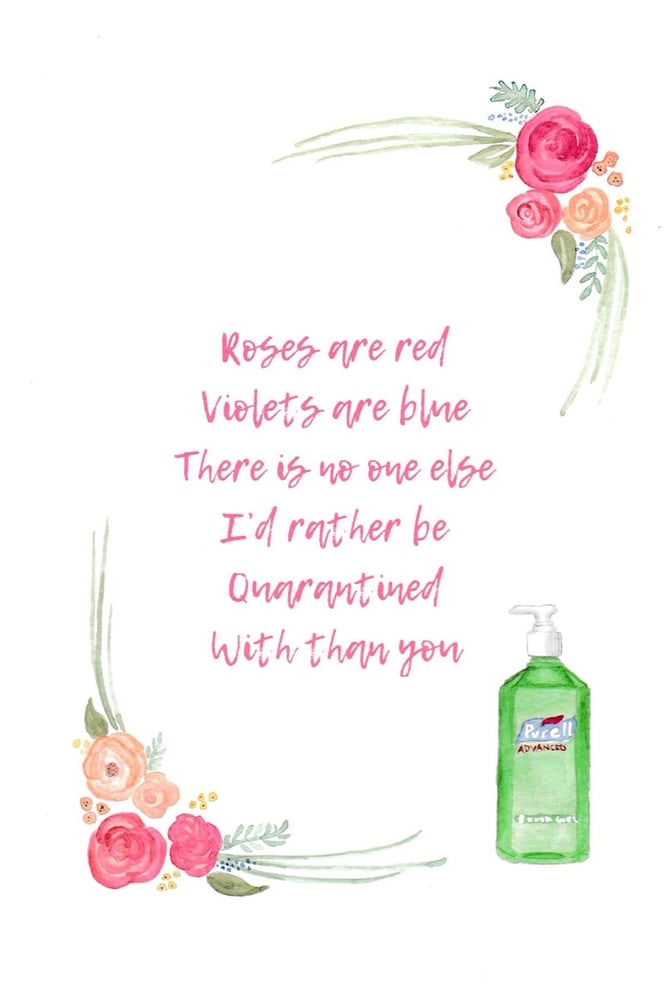 Roses are red
Violets are blue
There is no one else
I'd rather be
Quarantined
With than you
Purell
ADVANCED